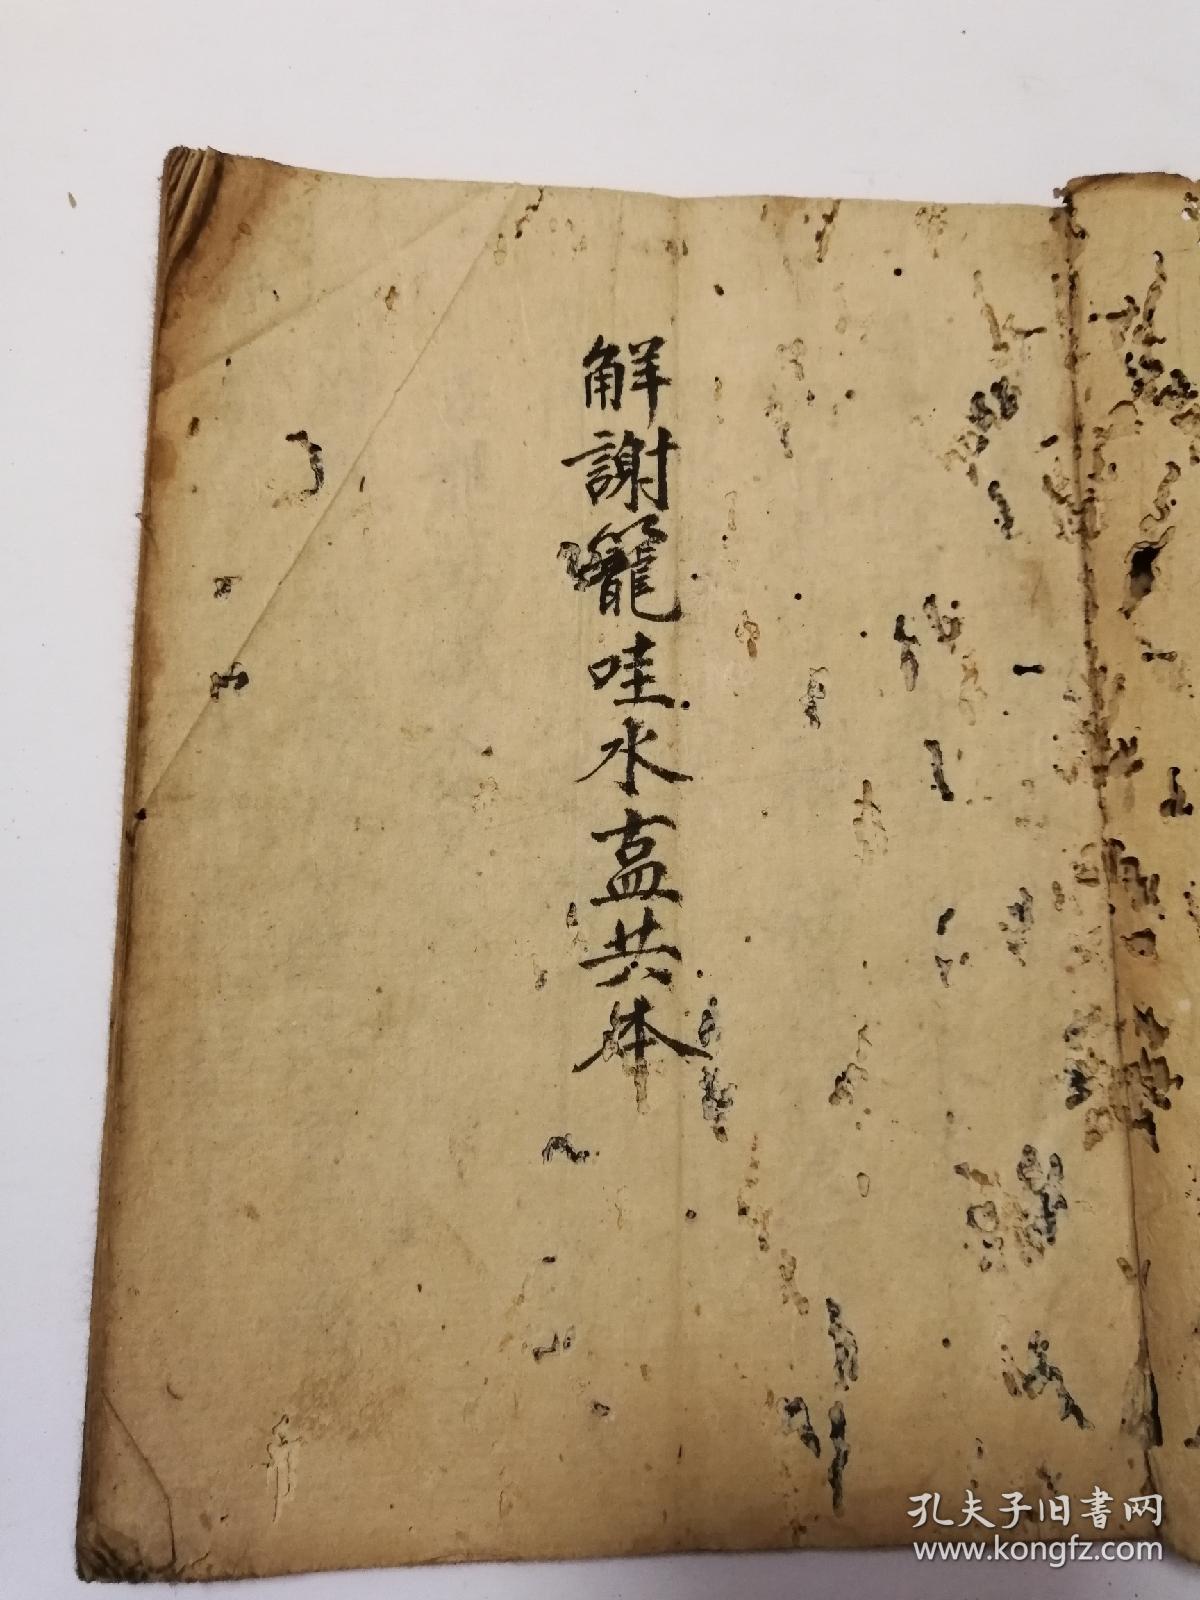 觧謝籠哇水盍共体
孔夫子旧書网
www.kongfz.com